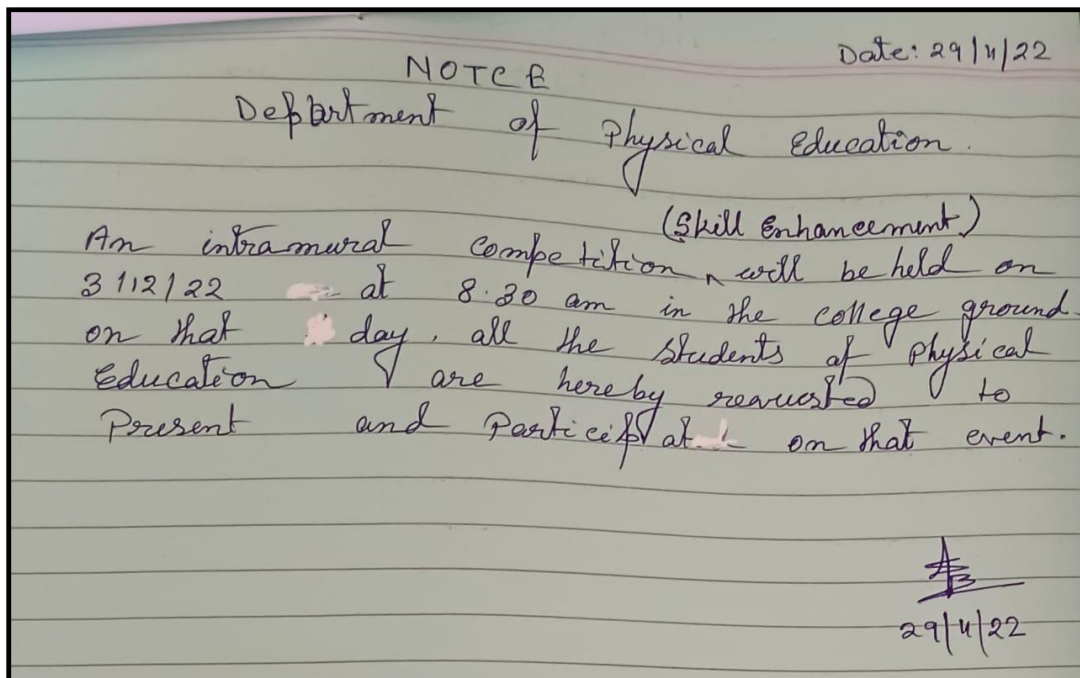 Date: 29/11/22
NOTCE
Department of Physical Education.
(Skill Enhancement)
An intramural Competition ^ will be held on
3/12/22 at 8.30 am in the college ground.
on that day, all the students of Physical
Education are hereby reauested to
Present and Participat on that event.
29/11/22